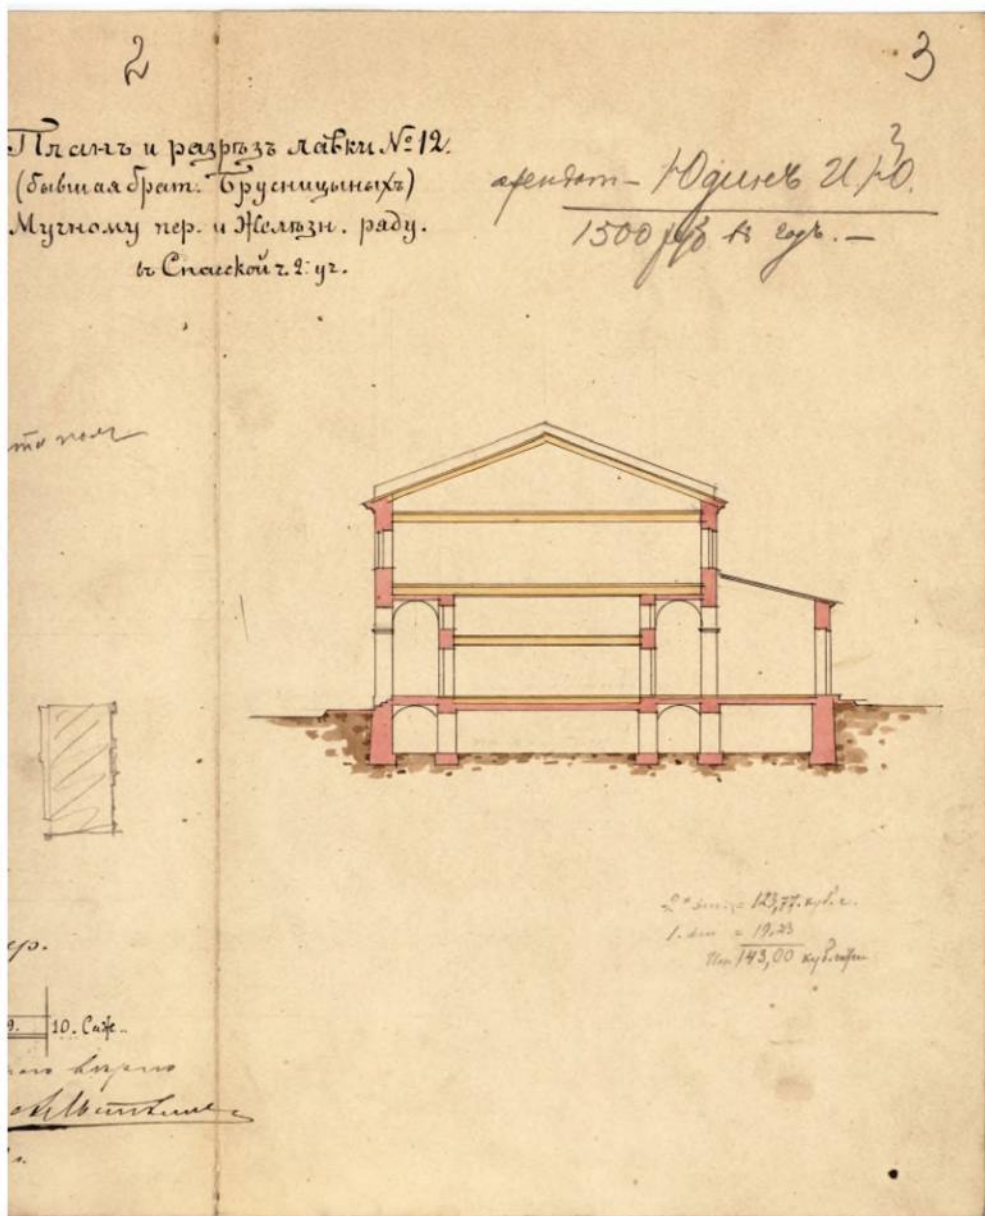 2
3
Планъ и разрѣзъ лавки № 12.
(бывшая брат. Брусницыныхъ)
Мучному пер. и Желѣзн. ряду.
въ Спасской ч. 2. уч.
арендат - Юдинъ И. Ю.
1500 руб въ годъ. —
= 123,77. куб. с.
= 19,23
143,00 куб. саж
ер.
9. 10. Саж.
вѣрно